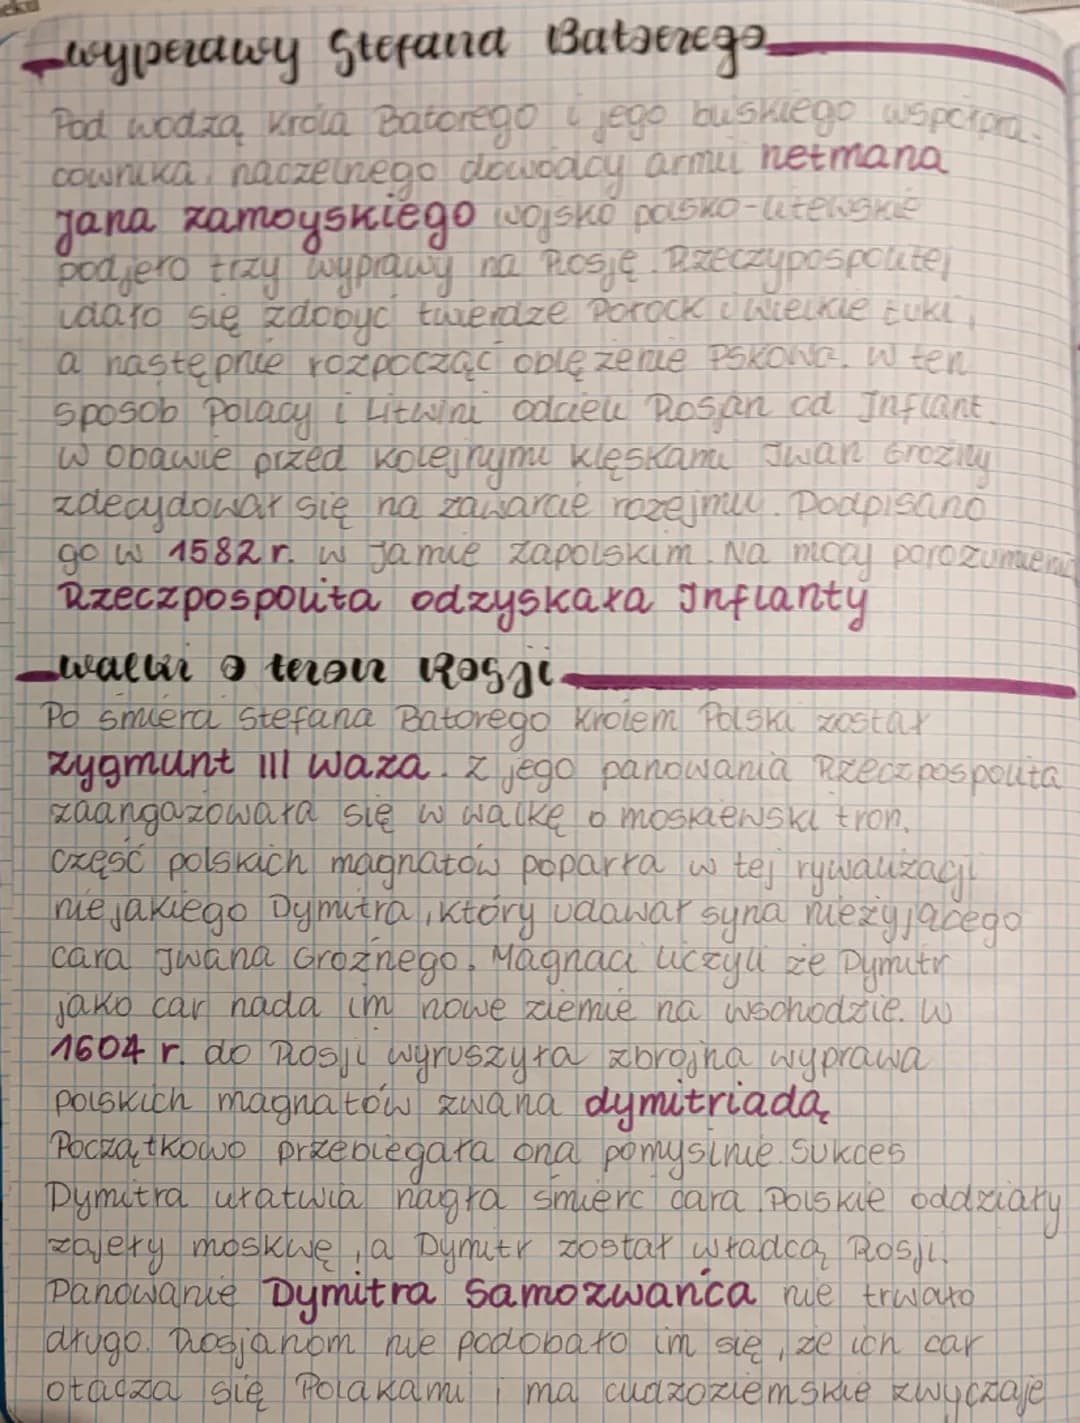 wyprawy Stefana Batorego
Pod wodzą króla Batorego i jego bliskiego współpra-
cownika, naczelnego dowódcy armii hetmana
Jana Zamoyskiego wojsko polsko-litewskie
podjęło trzy wyprawy na Rosję. Rzeczypospolitej
udało się zdobyć twierdze Połock i Wielkie Łuki,
a następnie rozpocząć oblężenie Pskowa. W ten
sposób Polacy i Litwini odcieli Rosjan od Inflant.
W obawie przed kolejnymi klęskami Iwan Groźny
zdecydował się na zawarcie rozejmu. Podpisano
go w 1582 r. w Jamie Zapolskim. Na mocy porozumienia
Rzeczpospolita odzyskała Inflanty
walki o tron Rosji
Po śmierci Stefana Batorego królem Polski został
Zygmunt III Waza. Z jego panowania Rzeczpospolita
zaangażowała się w walkę o moskiewski tron.
Część polskich magnatów poparła w tej rywalizacji
niejakiego Dymitra, który udawał syna nieżyjącego
cara Iwana Groźnego. Magnaci liczyli że Dymitr
jako car nada im nowe ziemie na wschodzie. W
1604 r. do Rosji wyruszyła zbrojna wyprawa
polskich magnatów zwana dymitriadą
Początkowo przebiegała ona pomyślnie. Sukces
Dymitra ułatwia nagła śmierć cara. Polskie oddziały
zajęły moskwę, a Dymitr został władcą Rosji.
Panowanie Dymitra Samozwańca nie trwało
długo. Rosjanom nie podobało im się, że ich car
otacza się Polakami i ma cudzoziemskie zwyczaje